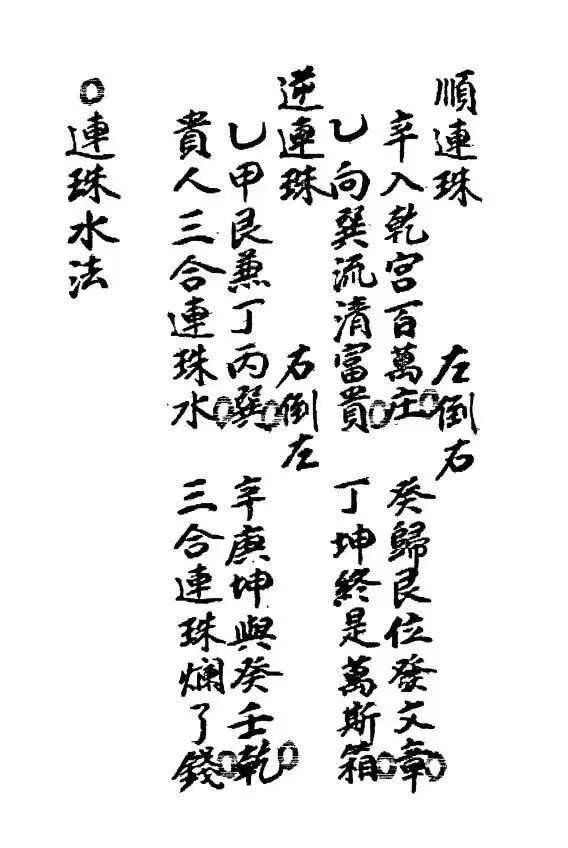 順連珠　左倒右
辛入乾宮百萬庄○癸歸艮位發文章○
乙向巽流清富貴○丁坤終是萬斯箱○
逆連珠　右倒左
乙甲艮兼丁丙巽○辛庚坤與癸壬乾○
貴人三合連珠水○三合連珠爛了錢○
○連珠水法